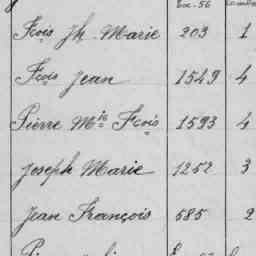 Fois Jh. Marie 203 1
Fçois Jean 1549 4
Pierre Mie Fçois 1593 4
Joseph Marie 1252 3
Jean François 585 2